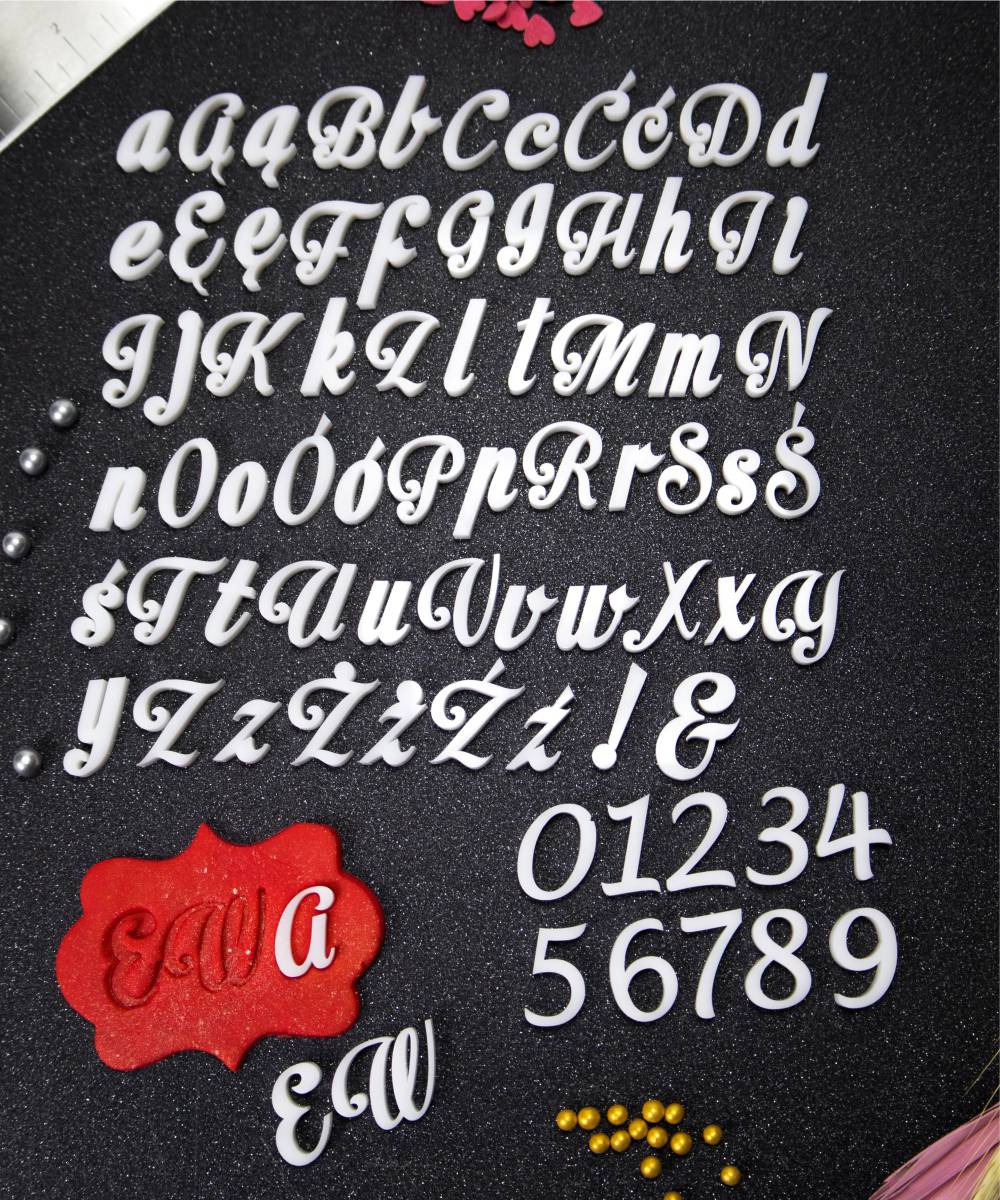 2
aĄąBbCcĆćDd
eĘęFfGgHhIi
JjKkLlłMmN
nOoÓóPpRrSsŚ
śTtUuVvwXxY
yZzŻżŹź!&
01234
56789
EWA
EW